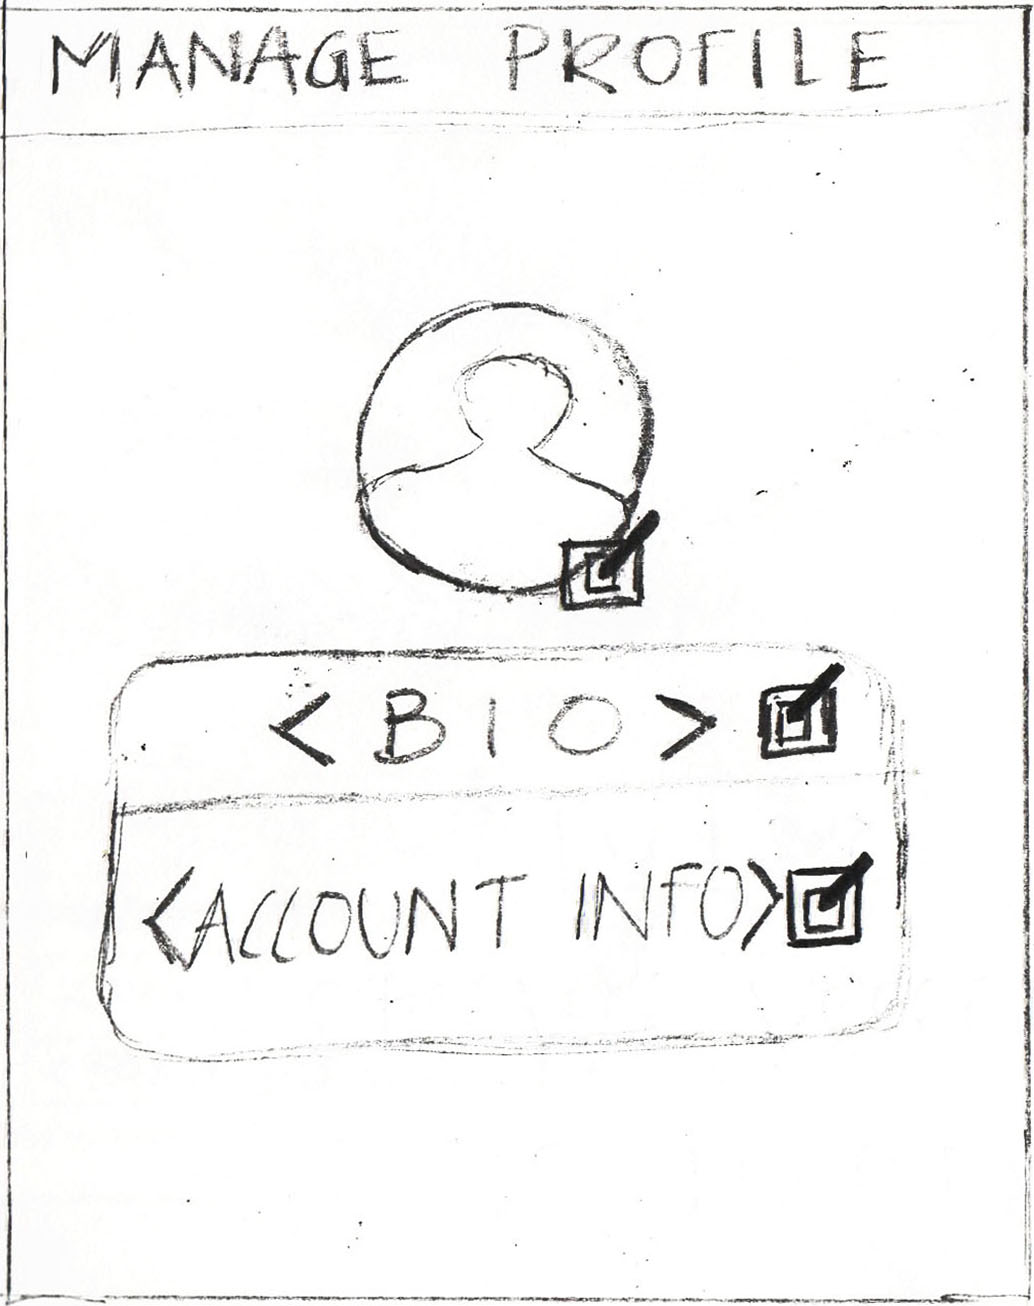 MANAGE PROFILE
<BIO>
<ACCOUNT INFO>